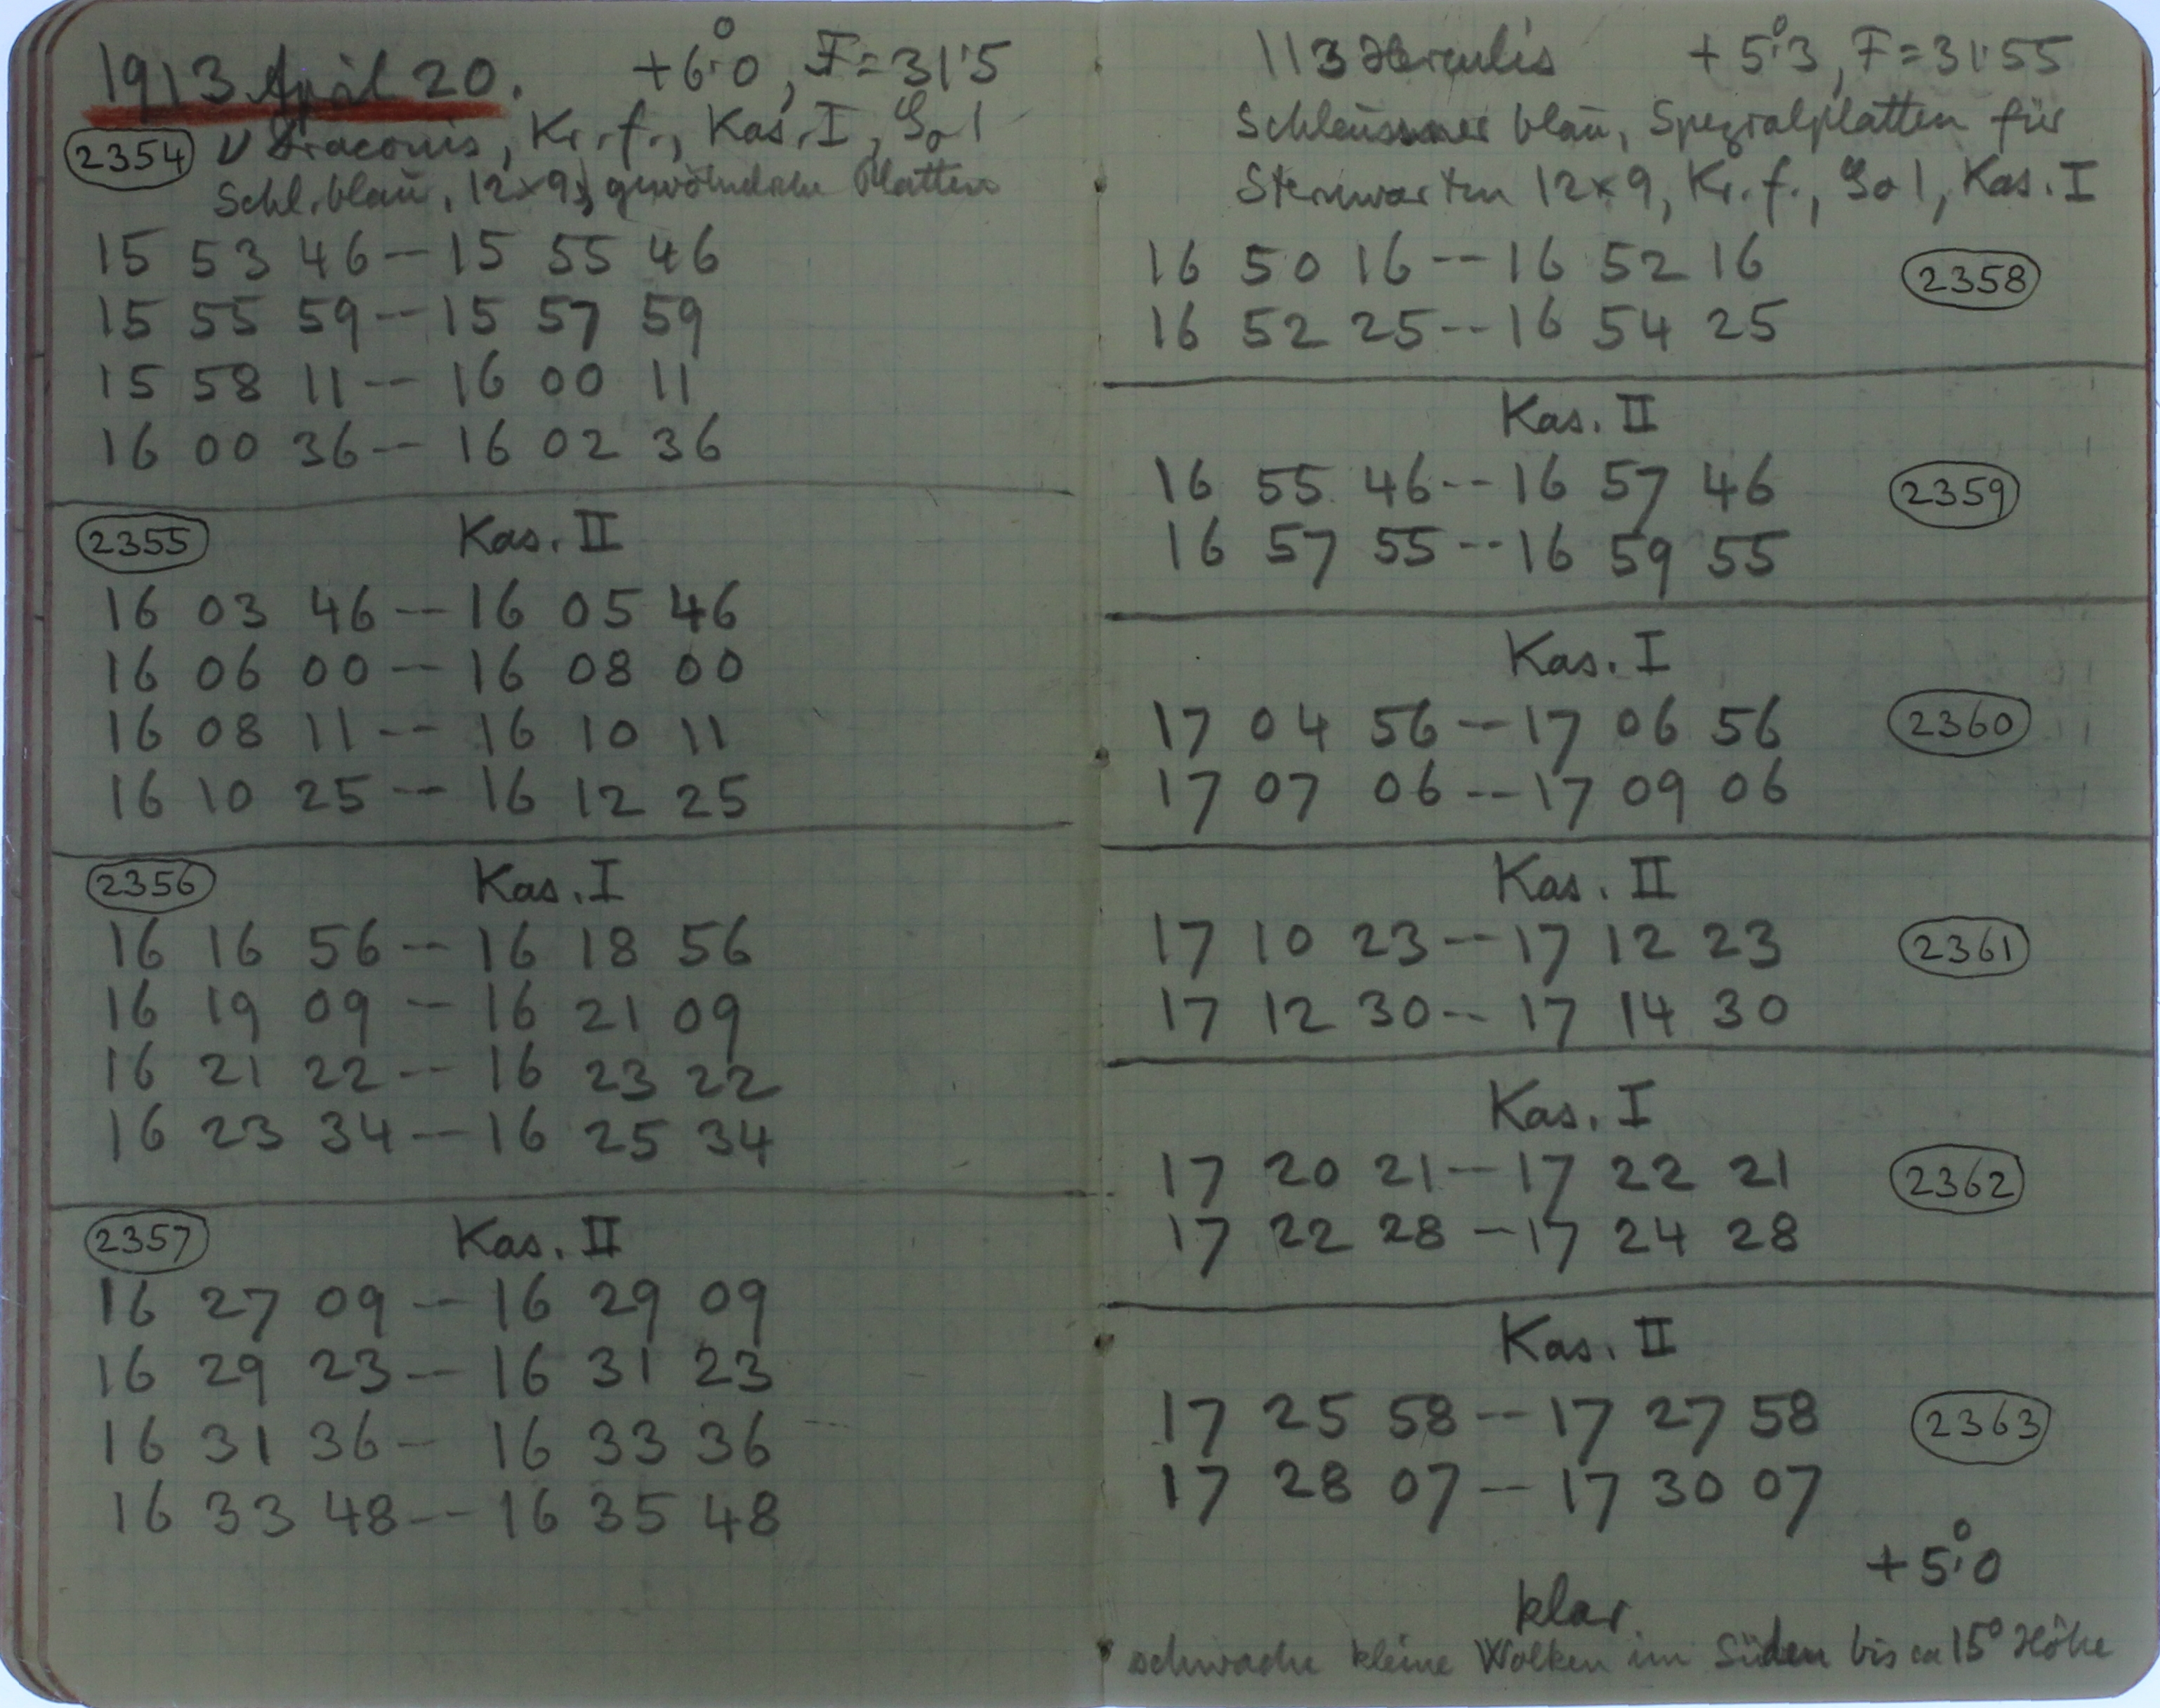 1913 April 20. +6°.0, F=31.5
2354 ν Draconis, Kr. f., Kas. I, 1
Schl. blau, 12×9, gewöhnliche Platten
15 53 46 -- 15 55 46
15 55 59 -- 15 57 59
15 58 11 -- 16 00 11
16 00 36 -- 16 02 36
2355 Kas. II
16 03 46 -- 16 05 46
16 06 00 -- 16 08 00
16 08 11 -- 16 10 11
16 10 25 -- 16 12 25
2356 Kas. I
16 16 56 -- 16 18 56
16 19 09 -- 16 21 09
16 21 22 -- 16 23 22
16 23 34 -- 16 25 34
2357 Kas. II
16 27 09 -- 16 29 09
16 29 23 -- 16 31 23
16 31 36 -- 16 33 36
16 33 48 -- 16 35 48
113 Herculis +5°.3, F=31.55
Schleussner blau, Spezialplatten für
Sternwarten 12×9, Kr. f., 1, Kas. I
16 50 16 -- 16 52 16 2358
16 52 25 -- 16 54 25
Kas. II
16 55 46 -- 16 57 46 2359
16 57 55 -- 16 59 55
Kas. I
17 04 56 -- 17 06 56 2360
17 07 06 -- 17 09 06
Kas. II
17 10 23 -- 17 12 23 2361
17 12 30 -- 17 14 30
Kas. I
17 20 21 -- 17 22 21 2362
17 22 28 -- 17 24 28
Kas. II
17 25 58 -- 17 27 58 2363
17 28 07 -- 17 30 07
+5°.0
klar.
schwache kleine Wolken im Süden bis ca 15° Höhe